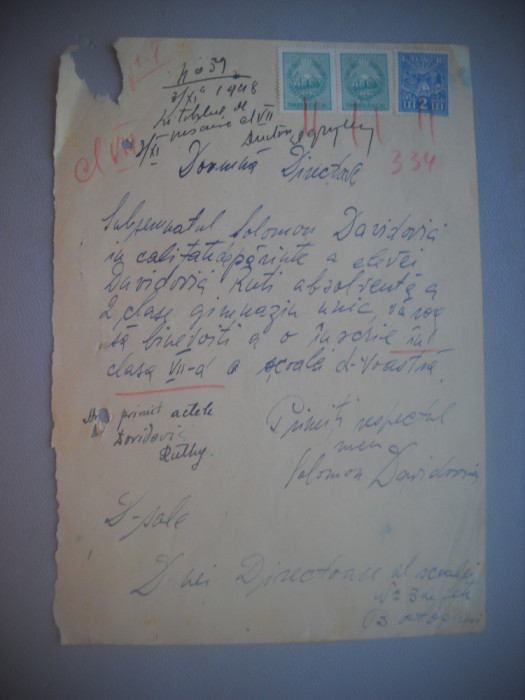 No 59
3/XI 1948
cl VII
3/XI
cl VII
334
2
Doamnă Directoare
Subsemnatul Solomon Davidovici
în calitate de părinte a elevei
Davidovici Ruti absolventă a
2 clase gimnaziu unic, vă rog
să binevoiți a o înscrie în
clasa VII-a a școalei d-voastră.
Primiți respectul
meu
Solomon Davidovici
Am primit actele
Davidovici
Ruthy.
D-sale
D-nei Directoare
No 3